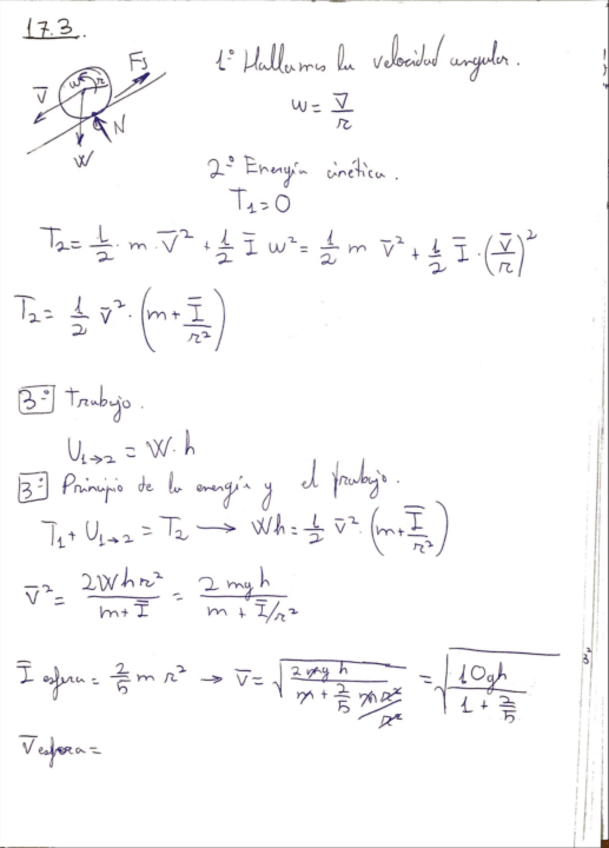 17.3.
1º Hallamos la velocidad angular.
Fs
V̄ w r
N
W
w = V̄/r
2º Energía cinética.
T₁ = 0
T₂ = 1/2 · m · V̄² + 1/2 Ī w² = 1/2 m V̄² + 1/2 Ī · (V̄/r)²
T₂ = 1/2 V̄² · (m + Ī/r²)
3º Trabajo.
U₁→₂ = W · h
3º Principio de la energía y el trabajo.
T₁ + U₁→₂ = T₂ → Wh = 1/2 V̄² · (m + Ī/r²)
V̄² = 2Whr²/m + Ī = 2mgh/m + Ī/r²
Ī esfera = 2/5 m r² → V̄ = √(2mgh/m + 2/5 mr²/r²) = √(10gh/1 + 2/5)
V̄ esfera =